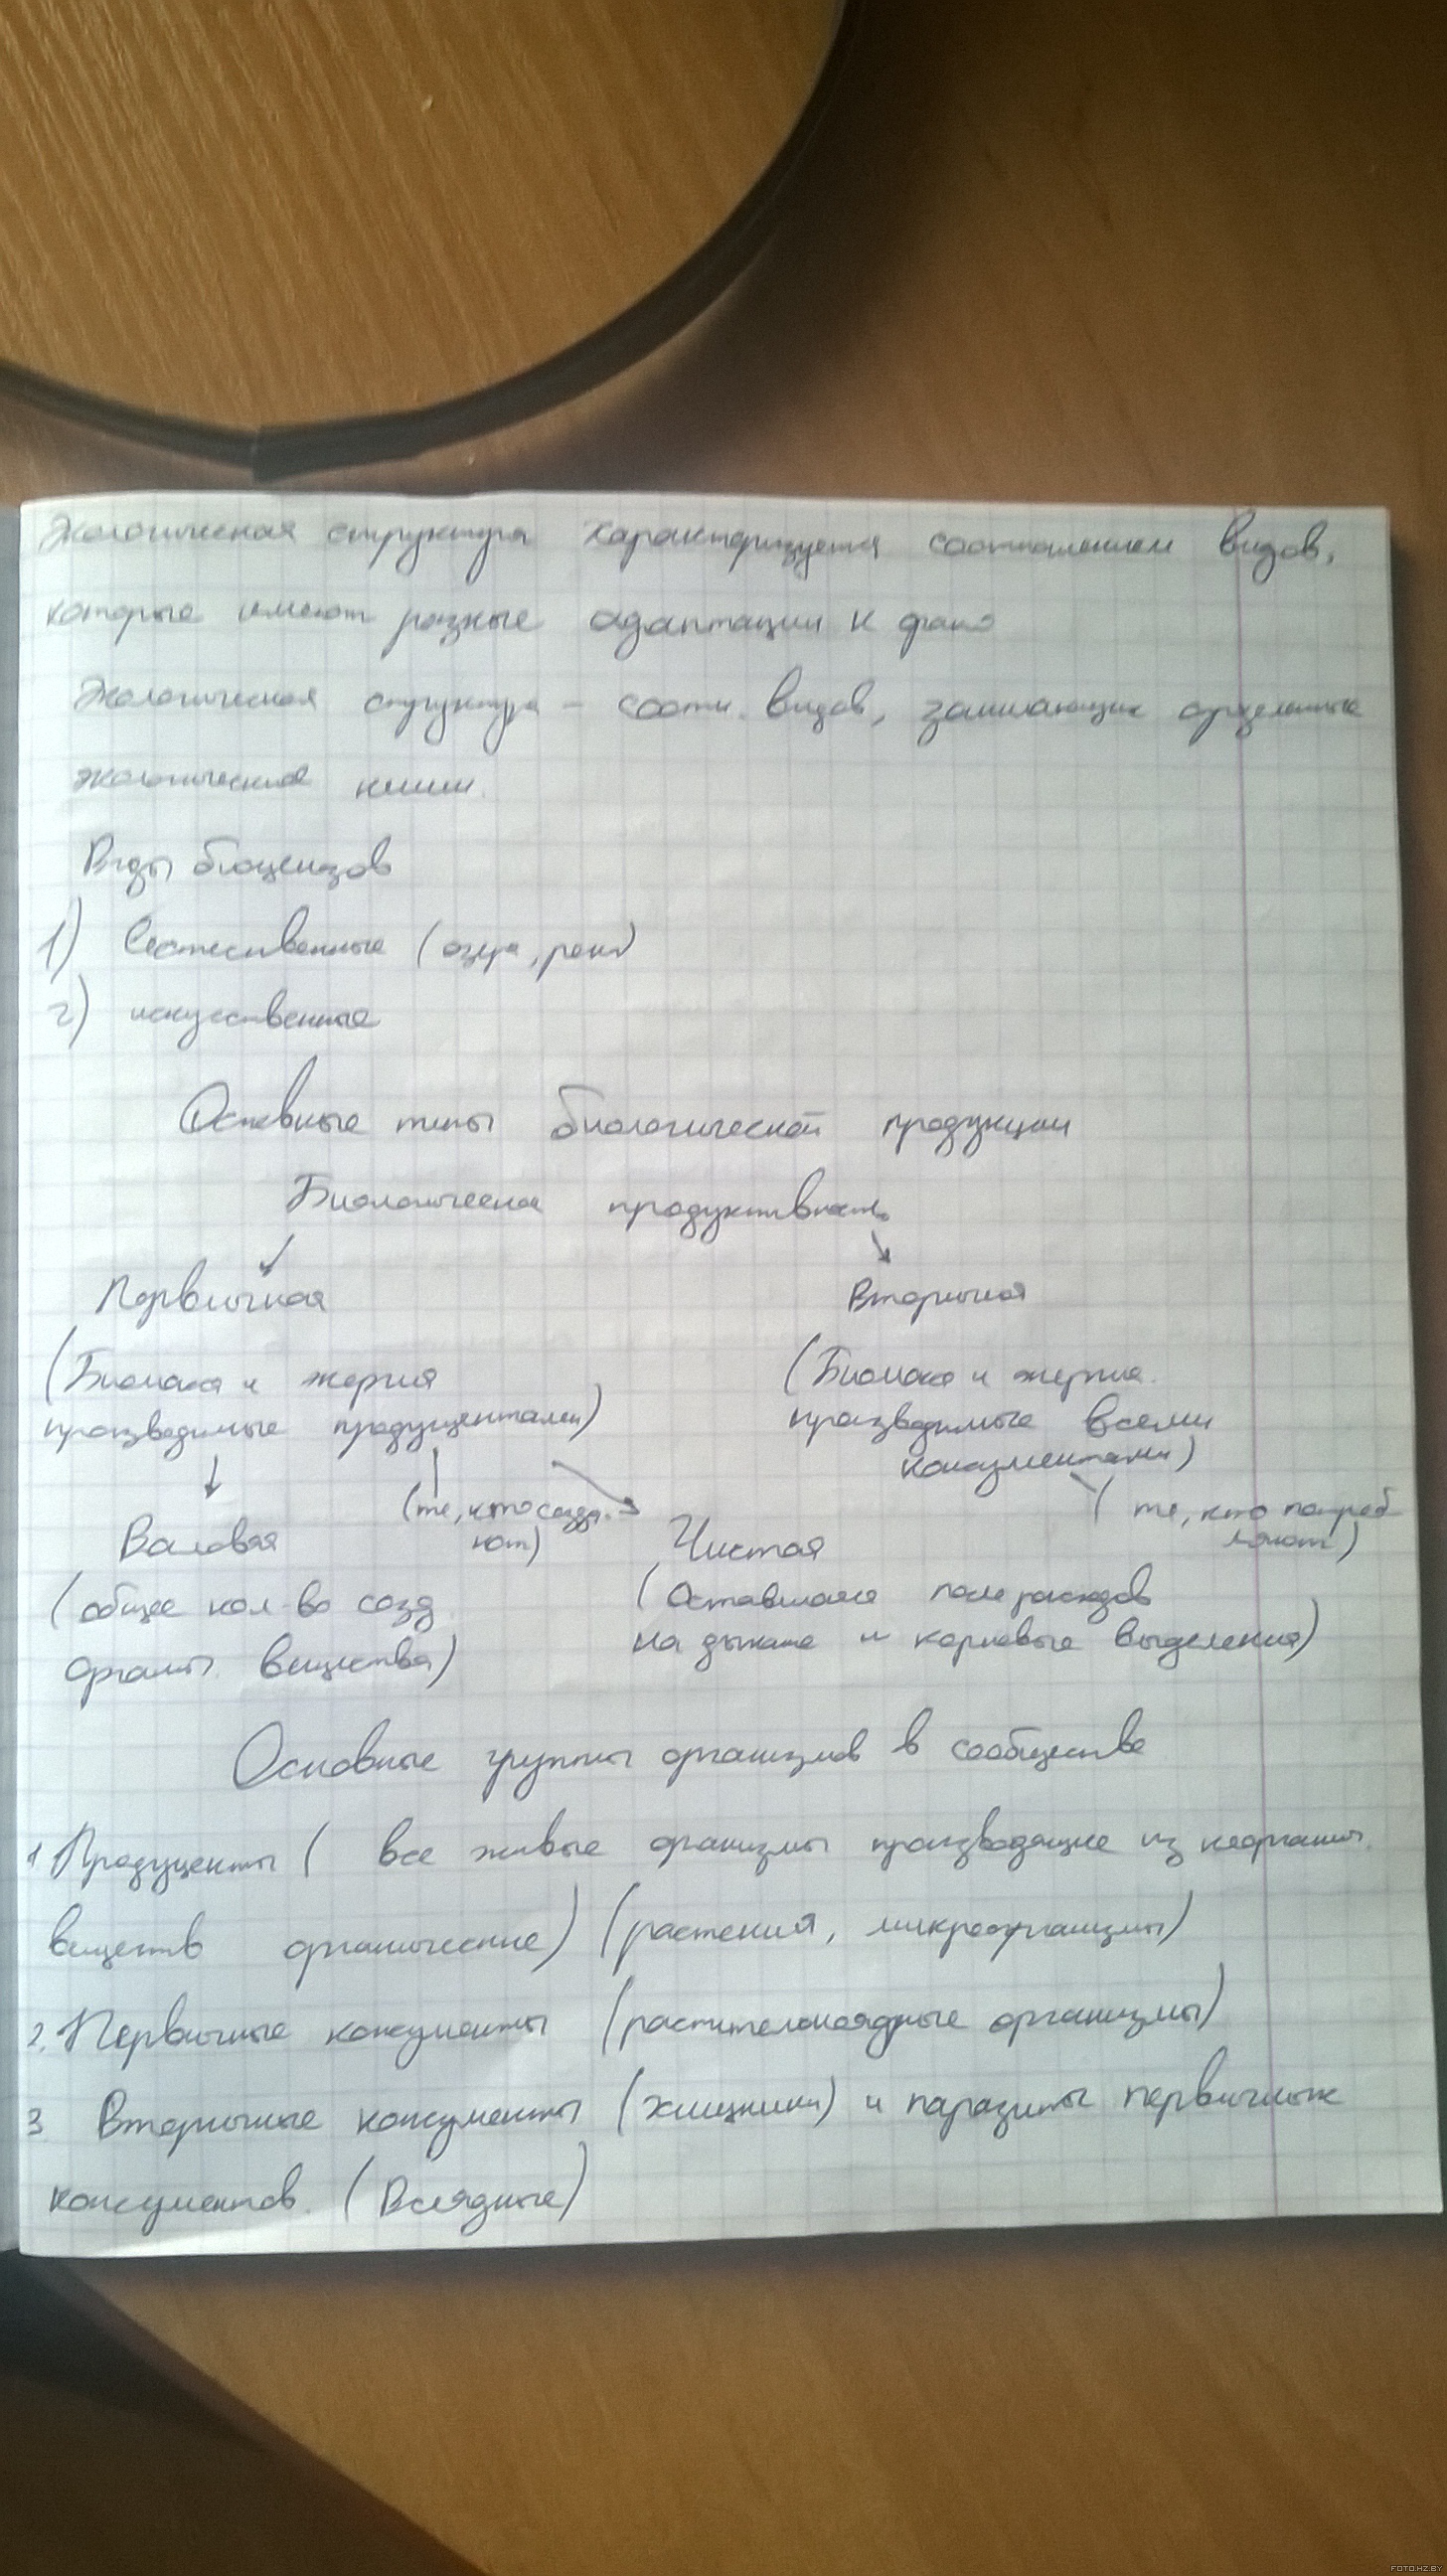 Экологическая структура характеризуется соотношением видов,
которые имеют разные адаптации к
Экологическая структура - соотн. видов,
экологические ниши.
Виды биоценозов
1) Естественные (озера, реки)
2) искусственные
Основные типы биологической продукции
Биологическая продуктивность
Первичная Вторичная
(Биомасса и энергия (Биомасса и энергия
производимые продуцентами) производимые всеми
консументами)
(те, кто созд. (те, кто потреб
ют) ляют)
Валовая Чистая
(общее кол-во созд (Оставшаяся после расходов
органич. вещества) на дыхание и корневые выделения)
Основные группы организмов в сообществе
1 Продуценты (все живые организмы производящие из неорганич.
веществ органические) (растения, микроорганизмы)
2. Первичные консументы (растительноядные организмы)
3 Вторичные консументы (хищники) и паразиты первичных
консументов. (Всеядные)
FOTO.HZ.BY